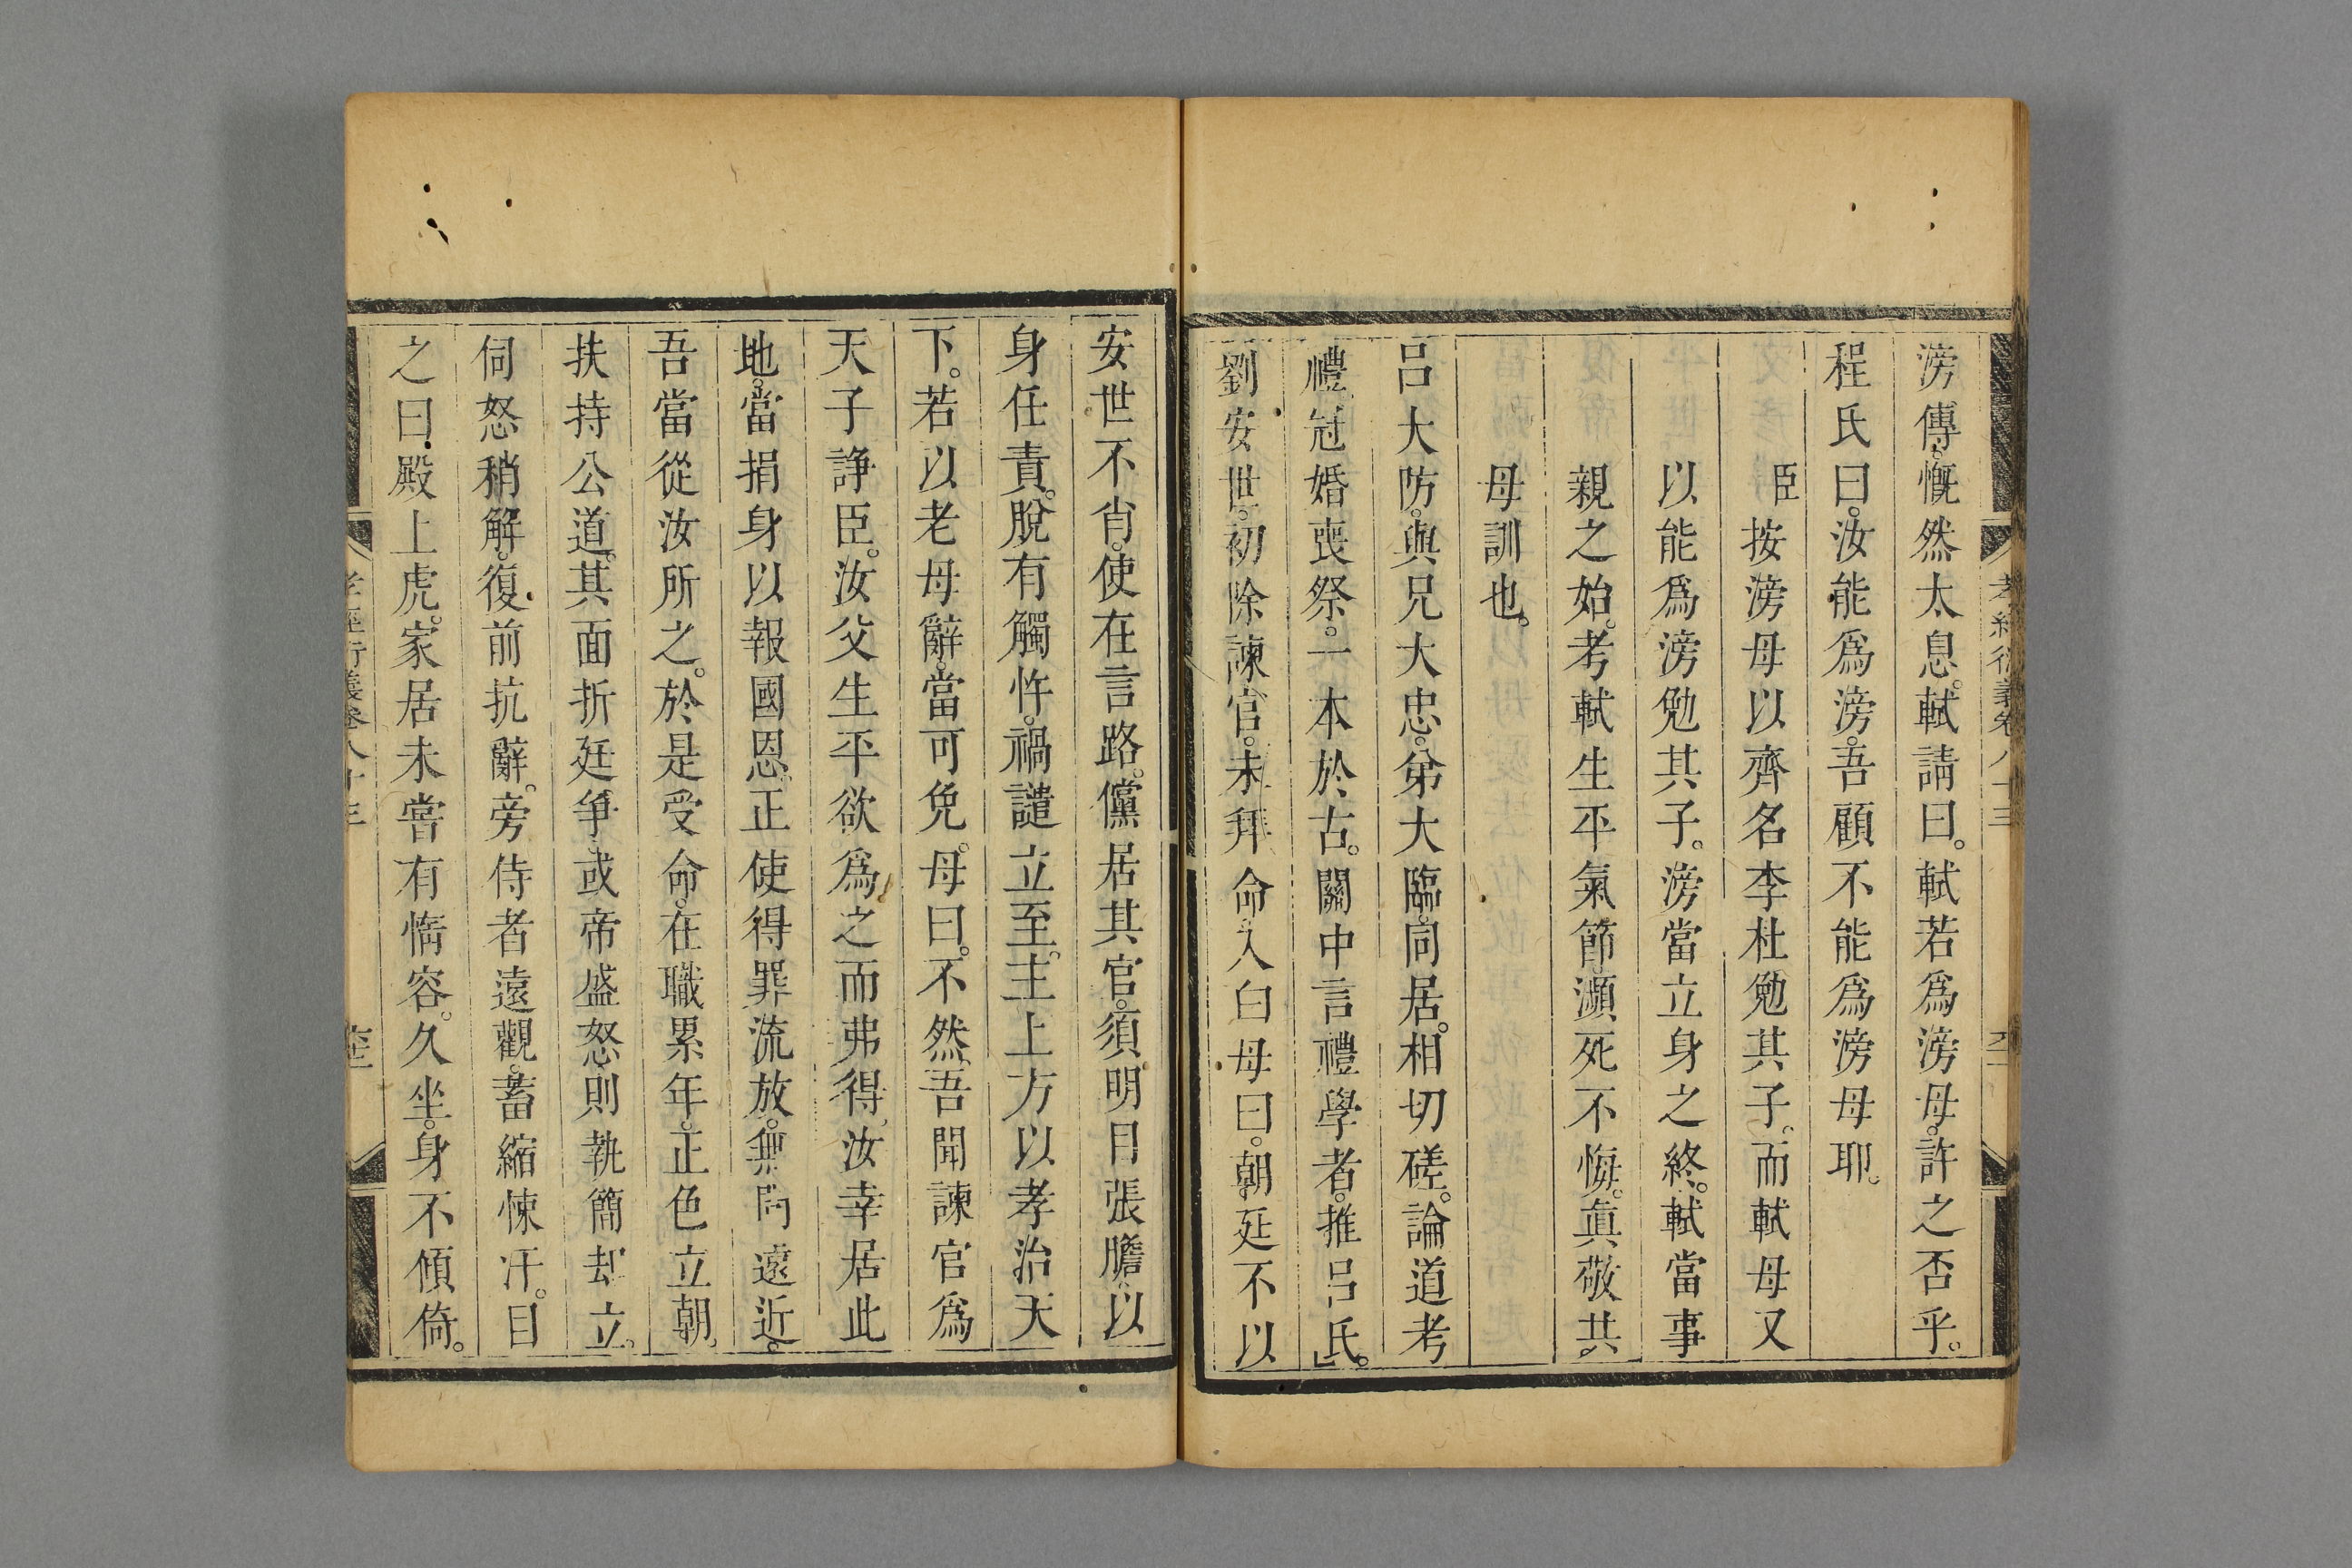 孝經衍義卷八十三
滂傳。慨然太息。軾請曰。軾若爲滂母。許之否乎。
程氏曰。汝能爲滂。吾顧不能爲滂母耶。
臣按滂母以齊名李杜勉其子。而軾母又
以能爲滂勉其子。滂當立身之終。軾當事
親之始。考軾生平氣節。瀕死不悔。眞敬共
母訓也。
呂大防。與兄大忠。弟大臨。同居。相切磋。論道考
禮。冠婚喪祭。一本於古。關中言禮學者。推呂氏。
劉安世。初除諫官。未拜命。入白母曰。朝廷不以
安世不肖。使在言路。儻居其官。須明目張膽。以
身任責。脫有觸忤。禍譴立至。主上方以孝治天
下。若以老母辭。當可免。母曰。不然。吾聞諫官爲
天子諍臣。汝父生平欲爲之而弗得。汝幸居此
地。當捐身以報國恩。正使得罪流放。無問遠近。
吾當從汝所之。於是受命。在職累年。正色立朝。
扶持公道。其面折廷爭。或帝盛怒。則執簡却立。
伺怒稍解。復前抗辭。旁侍者遠觀。蓄縮悚汗。目
之曰殿上虎。家居未嘗有惰容。久坐。身不傾倚。
孝經衍義卷八十三